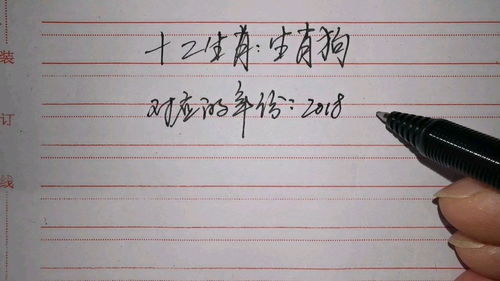 装
订
线
十二生肖:生肖狗
对应的年份:2018